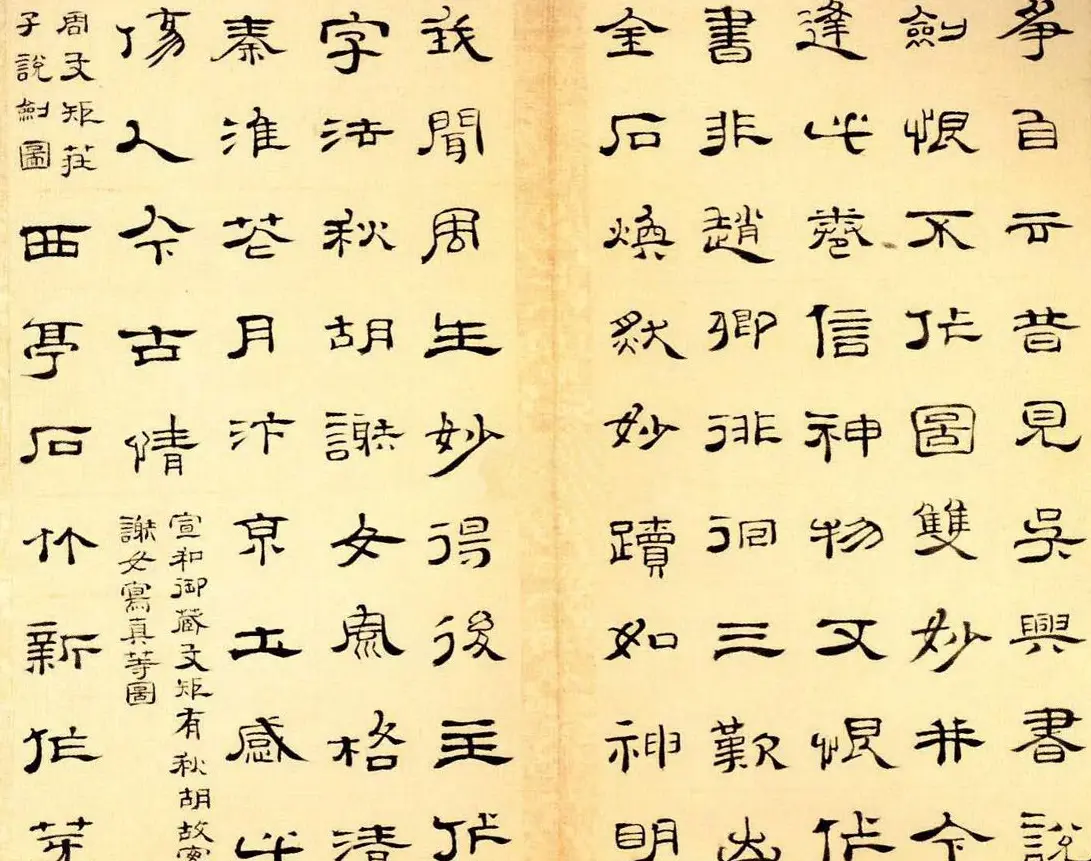 爭自云昔見吳興書說
劍恨不作圖雙妙并今
逢此卷信神物又恨作
書非趙卿徘徊三歎
金石煥然妙蹟如神明
我聞周生妙得後主作
字法秋胡謝女風格清
秦淮花月汴京土感此
傷人今古情
宣和御藏文矩有秋胡故實
謝女寫真等圖
周文矩莊
子說劍圖
西亭石竹新作芽